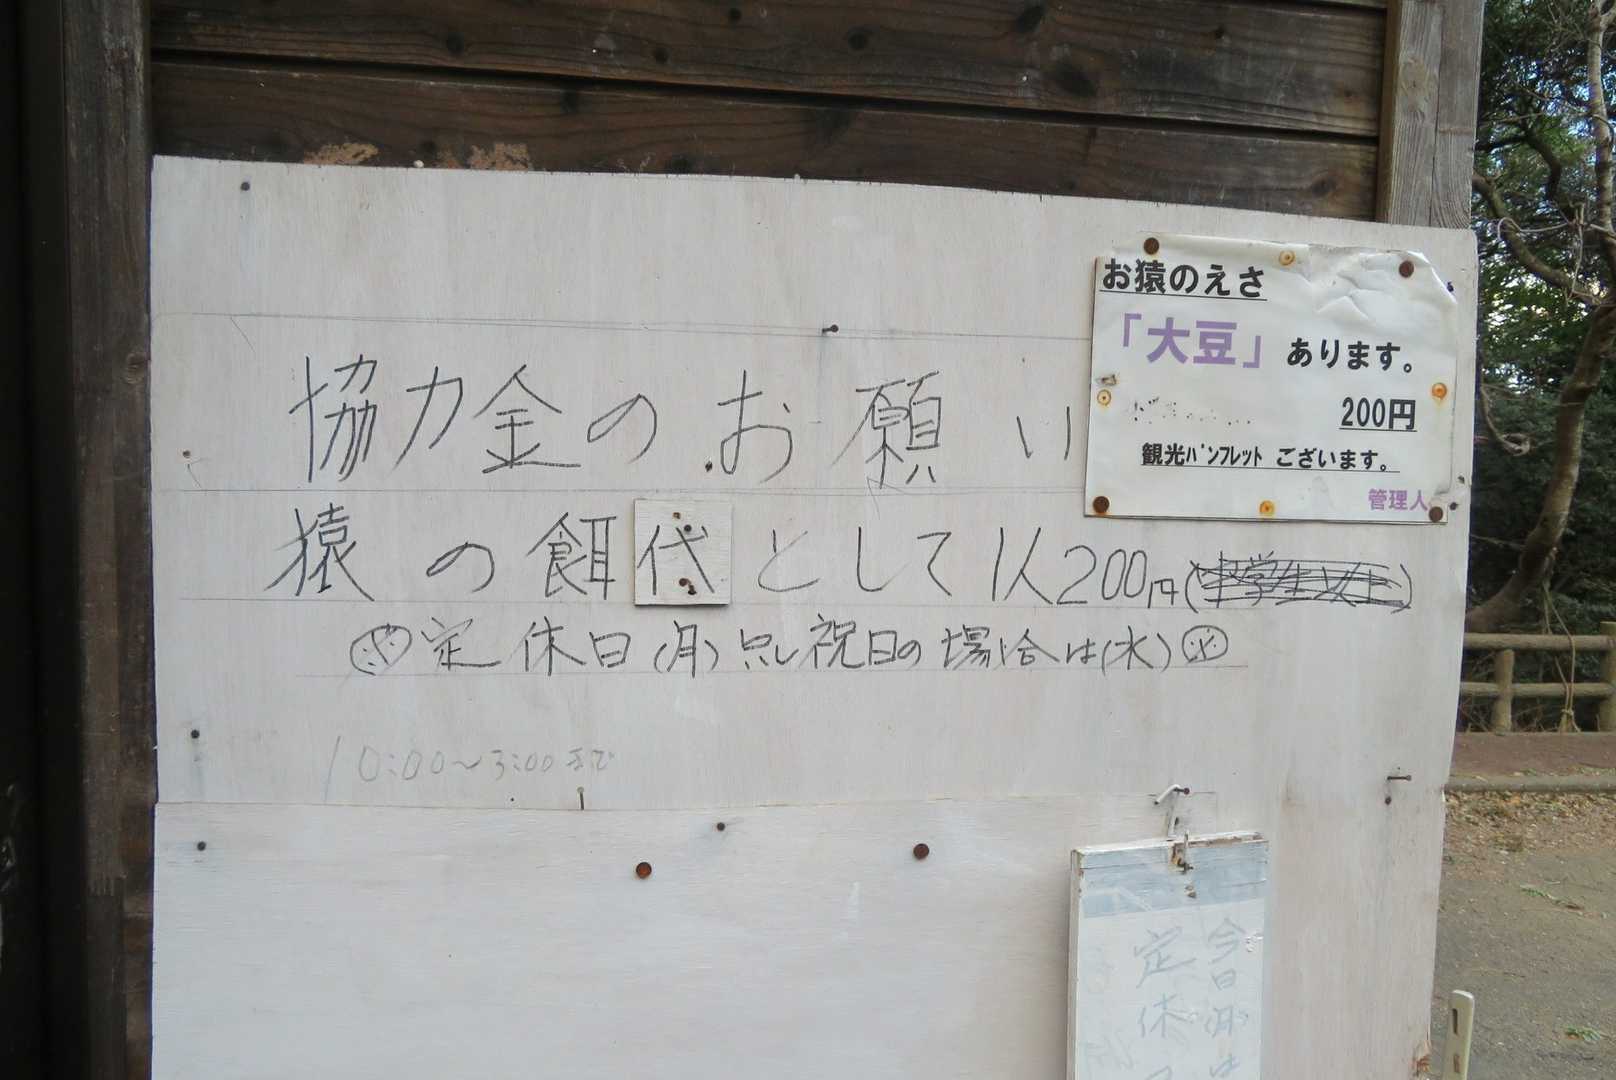 協力金のお願い
猿の餌代として1人200円(中学生以上)
※定休日(月)但し祝日の場合は(水)※
10:00〜3:00まで
お猿のえさ
「大豆」あります。
200円
観光パンフレット ございます。
管理人
今日(月)は
定休